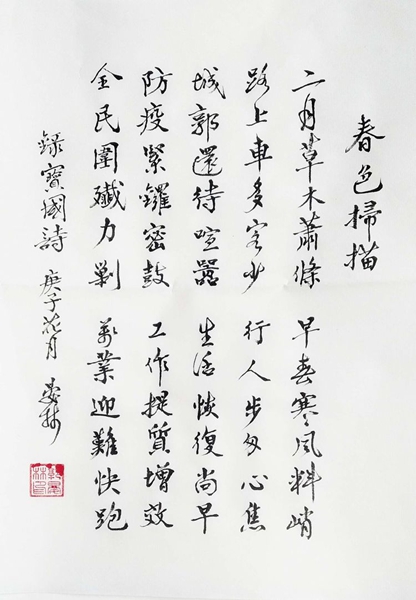 春色掃描
二月草木蕭條 早春寒風料峭
路上車多客少 行人步匆心焦
城郭還待喧囂 生活恢復尚早
防疫緊鑼密鼓 工作提質增效
全民圍殲力剿 萬業迎難快跑
錄寶國詩 庚子花月